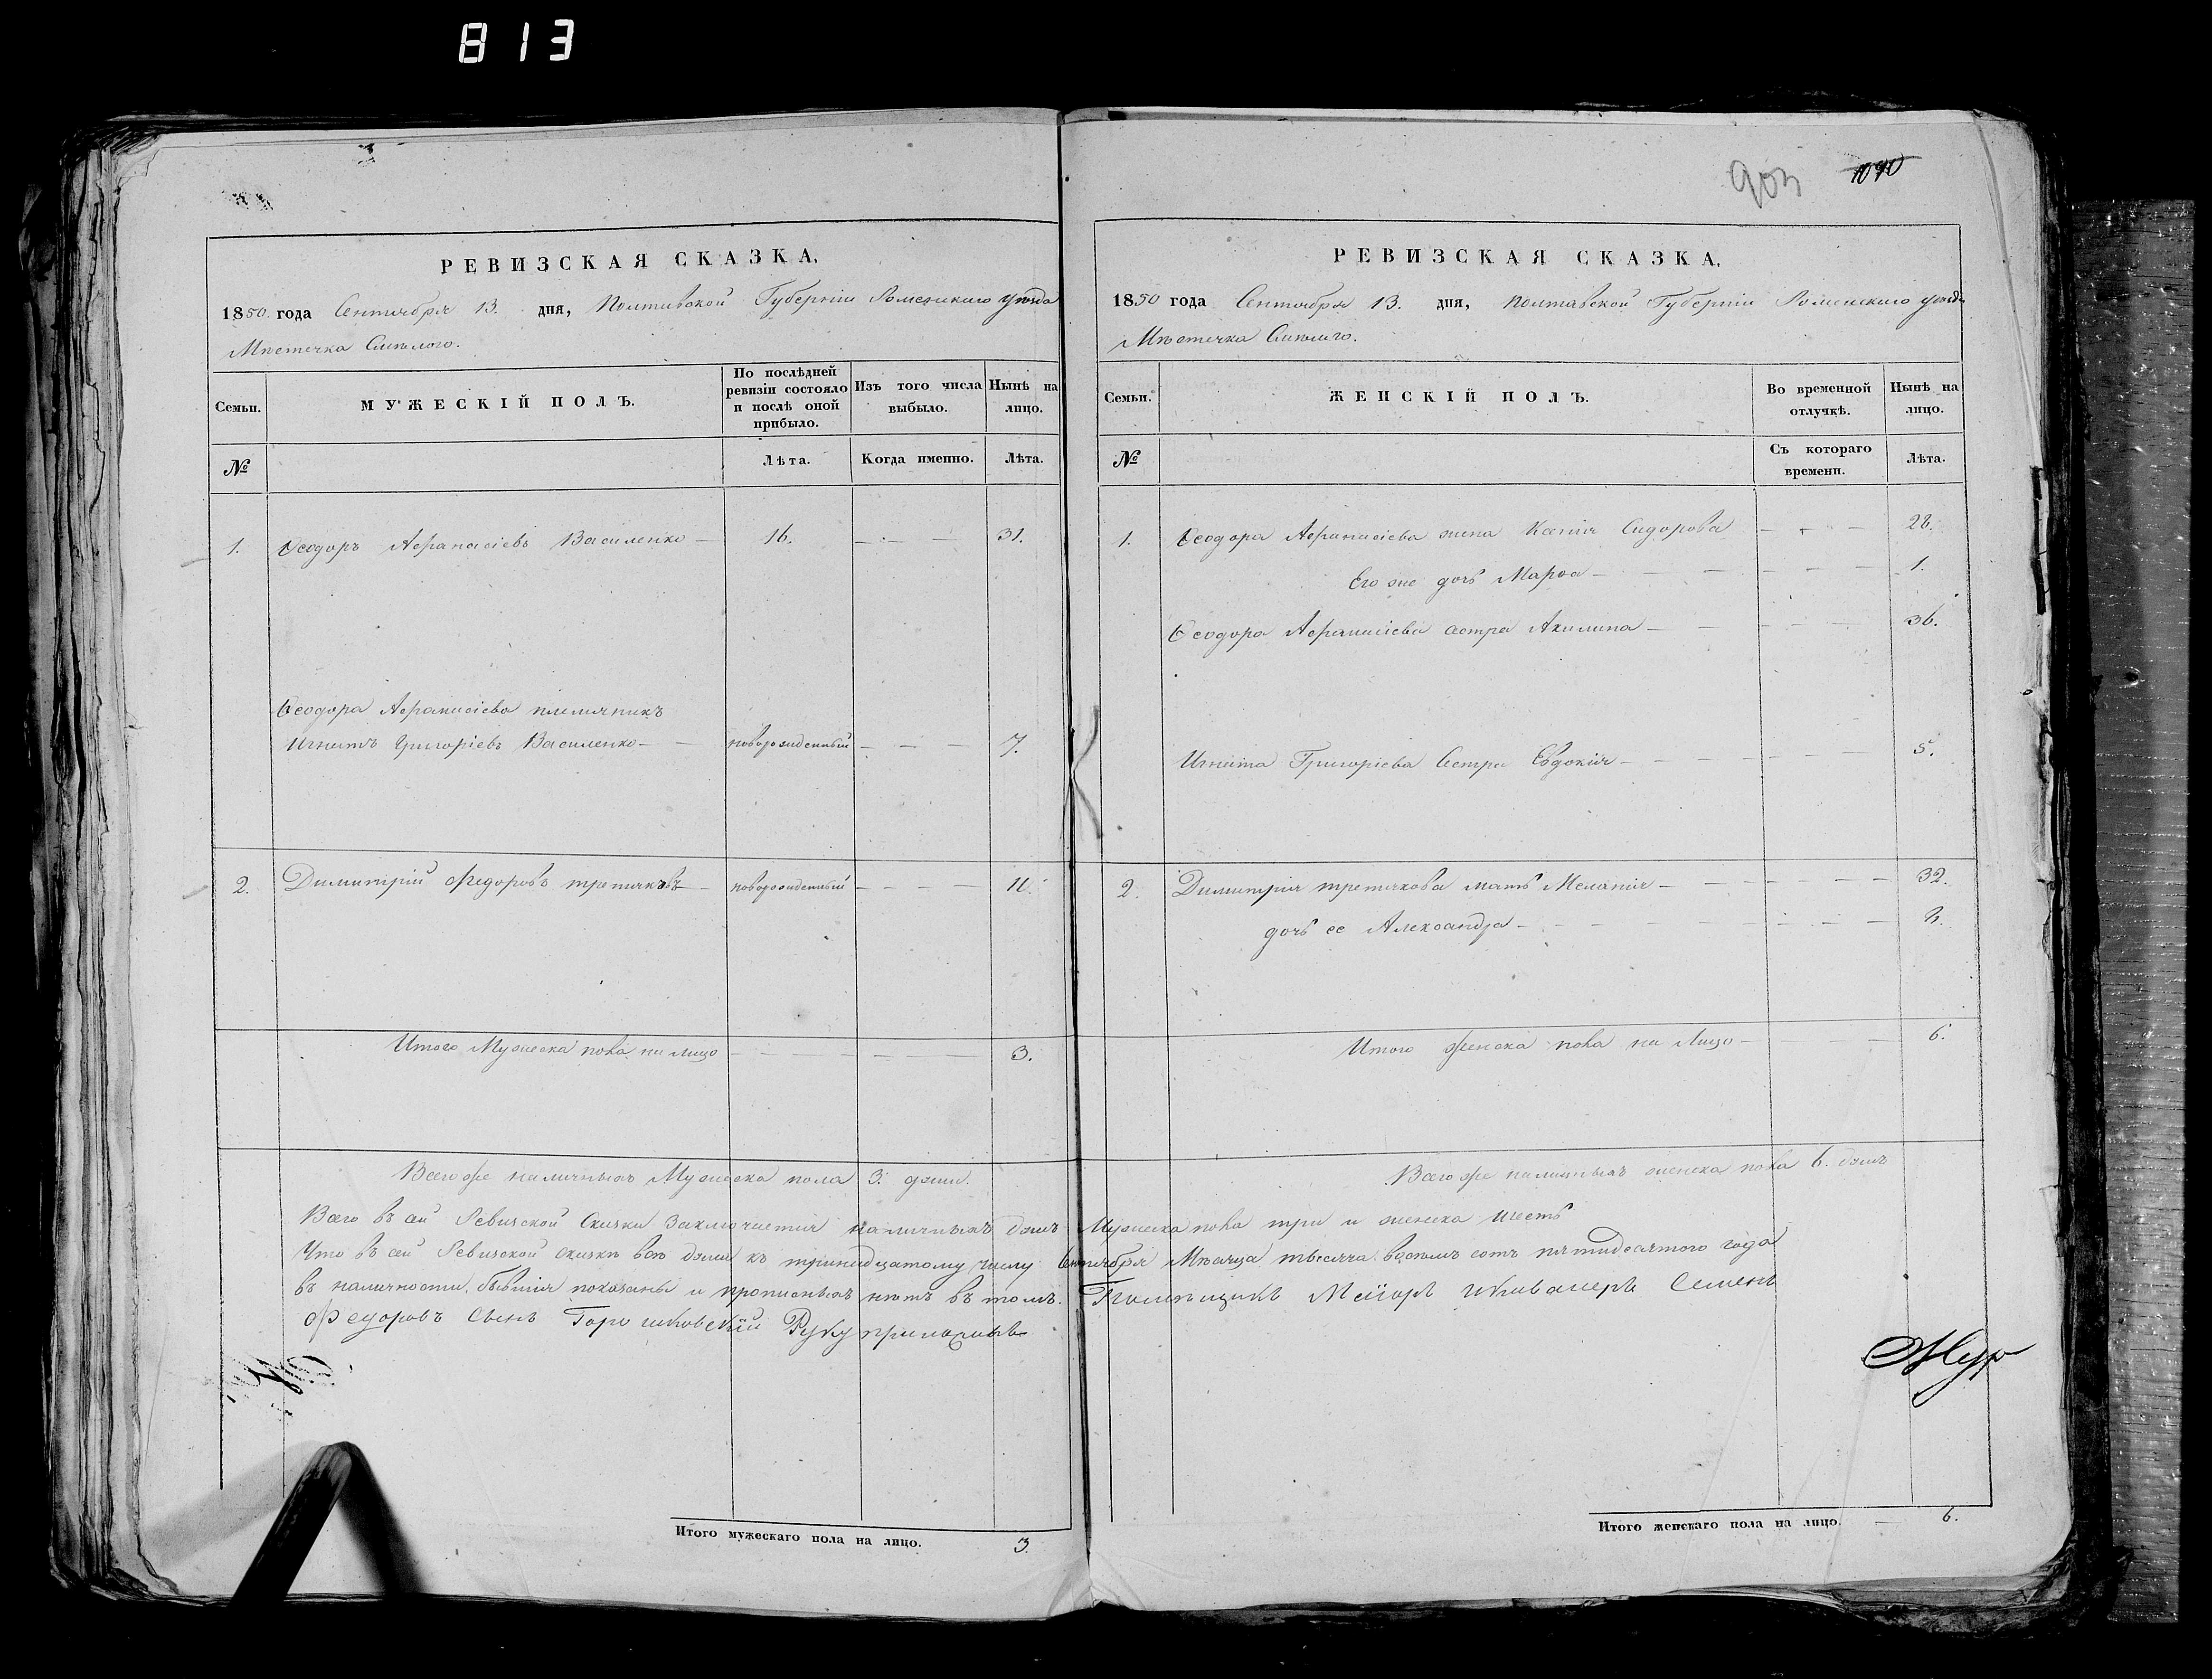 813
903 1090
РЕВИЗСКАЯ СКАЗКА,
1850. года Сентября 13. дня, Полтавской Губерніи Роменскаго уѣзда
Мѣстечка Смѣлого.
Семьи.
МУЖЕСКІЙ ПОЛЪ.
По послѣдней ревизіи состояло и послѣ оной прибыло.
Изъ того числа выбыло.
Нынѣ на лицо.
№
Лѣта.
Когда именно.
Лѣта.
1. Ѳеодоръ Аѳанасіевъ Василенко — 16. — — — 31.
Ѳеодора Аѳанасіева племянникъ
Игнатъ Григоріевъ Василенко — — новорожденный — — — 7.
2. Димитрій Федоровъ третяковъ — новорожденный — — — — 11.
Итого Мужеска пола на лицо — — — — — 3.
Всего же наличныхъ Мужеска пола 3. души.
Итого мужескаго пола на лицо. 3.
РЕВИЗСКАЯ СКАЗКА,
1850 года Сентября 13. дня, Полтавской Губерніи Роменскаго уѣзда
Мѣстечка Смѣлаго.
Семьи.
ЖЕНСКІЙ ПОЛЪ.
Во временной отлучкѣ.
Нынѣ на лицо.
№
Съ котораго времени.
Лѣта.
1. Ѳеодора Аѳанасіева жена Ксенія Сидорова — — — 28.
Его же дочь Марѳа — — — — — — — 1.
Ѳеодора Аѳанасіева сестра Акилина — — — — — 36.
Игната Григоріева Сестра Евдокія — — — — — — 5.
2. Димитрія третякова мать Меланія — — — — — — — 32.
дочь ее Александра — — — — — — —
Итого женска пола на Лицо — — — — 6.
Всего же наличныхъ женска пола 6. душъ
Всего въ сей Ревизской Сказки Заключается наличныхъ душъ Мужеска пола три и женска шесть
Что въ сей Ревизской сказкѣ всѣ души къ тринадцатому числу Сентября Мѣсяца тысяча восемь сотъ пятидесятого года
въ наличности, бывшія показаны и прописныхъ нѣтъ въ томъ. Помѣщикъ Маіоръ и кавалеръ Семенъ
Федоровъ Сынъ Горошковскій Руку приложилъ
Итого женскаго пола на лицо. — 6.